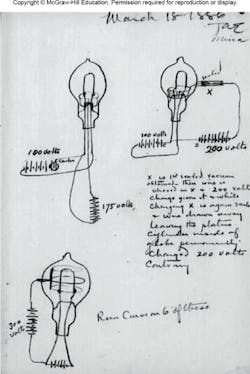 Copyright © McGraw-Hill Education. Permission required for reproduction or display.
March 18-1886
TAE
sealed
X
100 Volts
carbon
100 volts
200 volts
175 volts
X is 1st sealed vacuum
obtained then wire is
closed in X & 200 volt
change given it a while
charging X is again seal
& wire drawn away
leaving the platina
cylinder inside of
globe permanently
Charged 200 volts
Contrary
300 volts
Run Curves on 6 of these